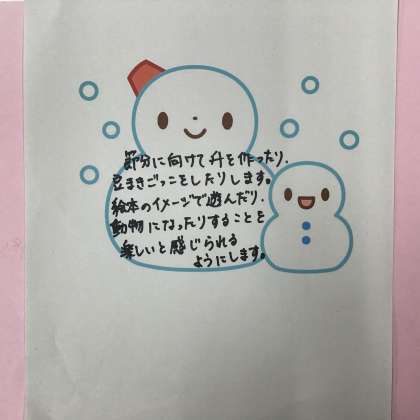 節分に向けて升を作ったり、
豆まきごっこをしたりします。
絵本のイメージで遊んだり、
動物になったりすることを
楽しいと感じられる
ようにします。